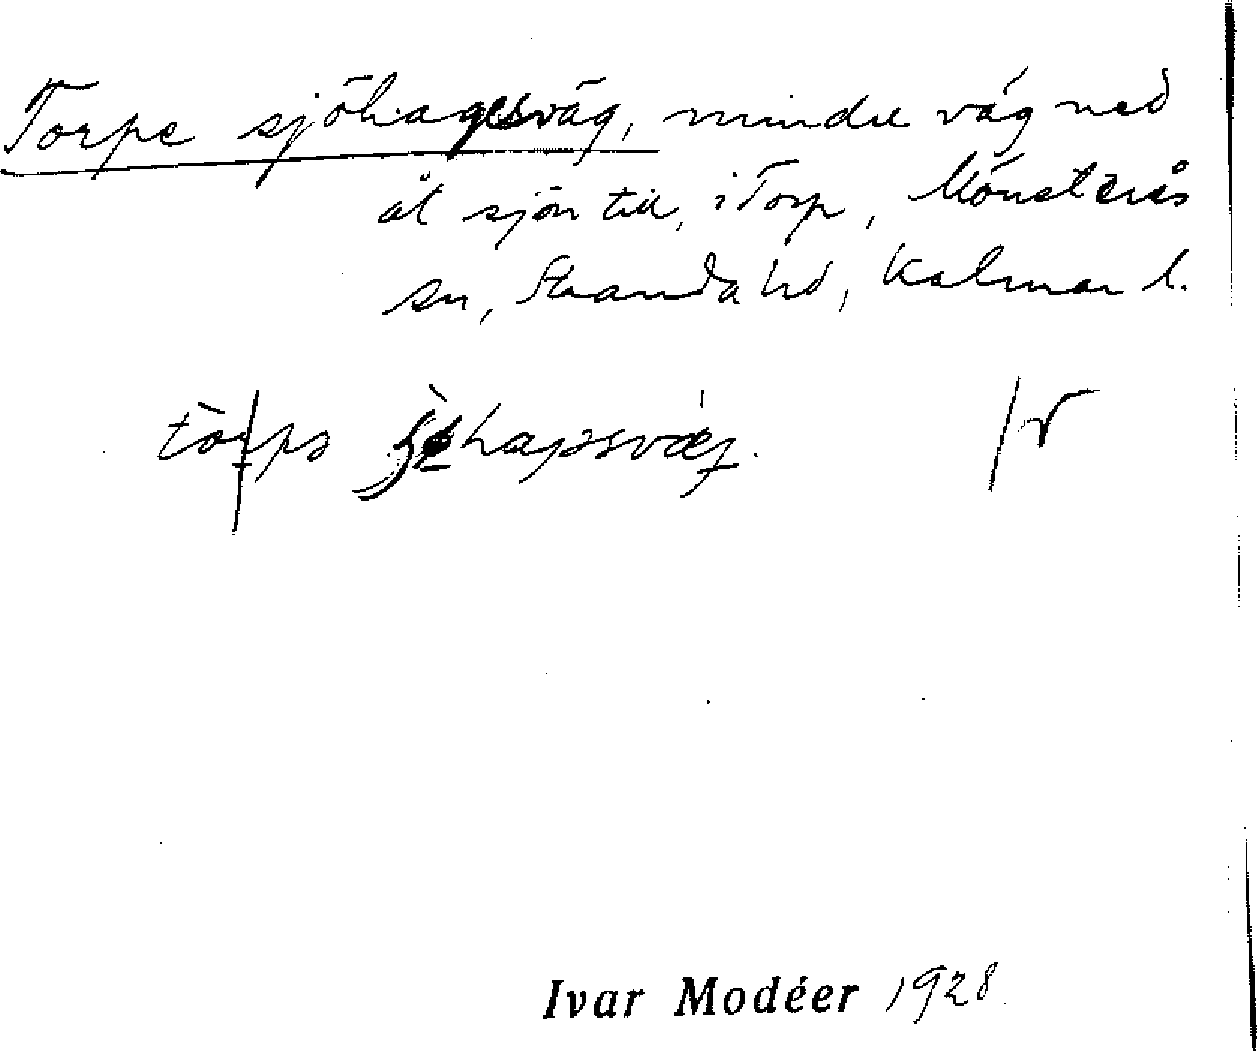 Torpe sjöhagesväg, mindre väg ned
åt sjön till, i Torp, Mönsterås
sn, Stranda hd, Kalmar l.
Ivar Modéer 1928.